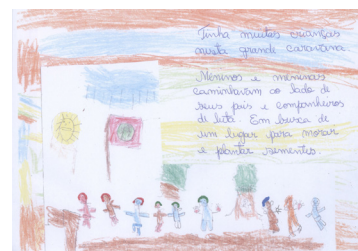 Tinha muitas crianças
nesta grande caravana.
Meninos e meninas
caminhavam ao lado de
seus pais e companheiros
de luta. Em busca de
um lugar para morar
e plantar sementes.